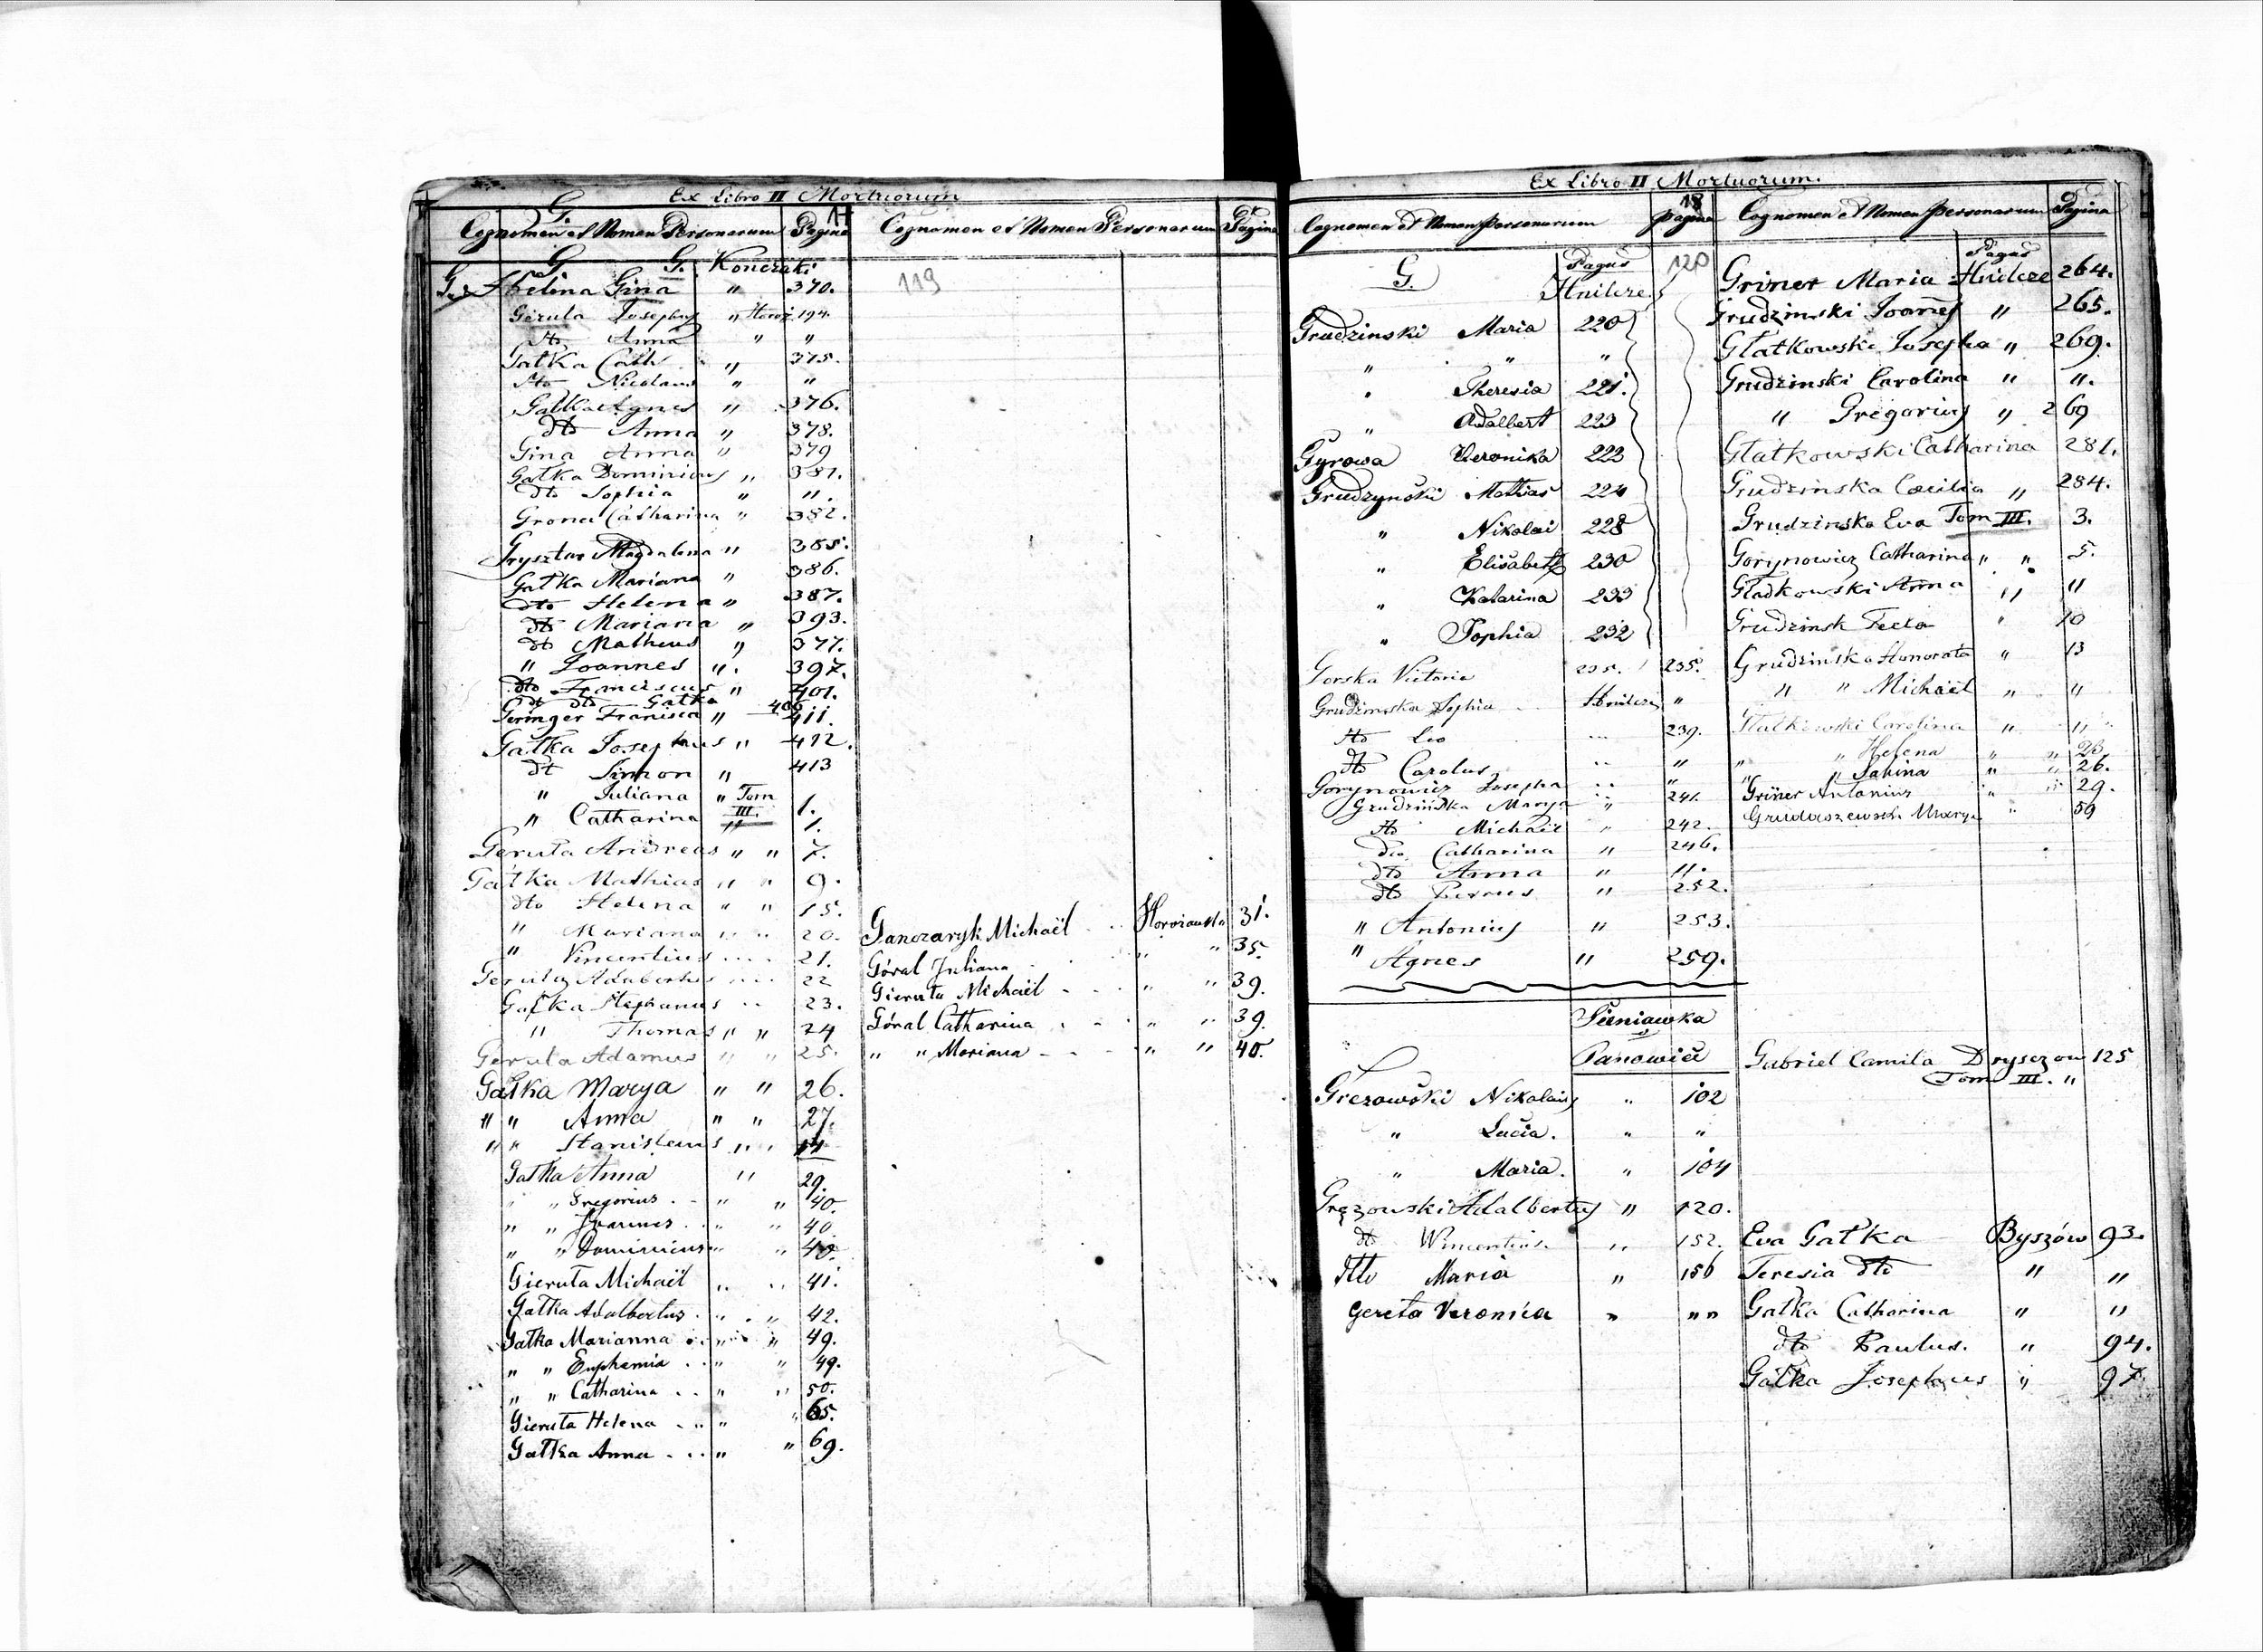 Ex Libro II Mortuorum
G.
17
Cognomen et Nomen Personarum Pagina Cognomen et Nomen Personarum Pagina
G. G. Konczaki
119
G. Helena Gina " 370.
Gerula Josephus " Horoż. 194.
dto Anna " "
Gałka Cath. " 375.
dto Nicolaus " "
Gałka Agnes " 376.
dto Anna " 378.
Gina Anna " 379
Gałka Dominicus " 381.
dto Sophia " ".
Groner Catharina " 382.
Grysztar Magdalena " 385.
Gałka Mariana " 386.
dto Helena " 387.
dto Mariana " 393.
dt Matheus " 377.
" Joannes " 397.
dto Franciscus " 401.
dt dto Gałka 406
Geringer Francisca " 411.
Gałka Josephus " 412.
dt Simon " 413
" Juliana " Tom III. 1.
" Catharina " 1.
Geruła Andreas " " 7.
Gałka Mathias " " 9.
dto Helena " " 15.
" Mariana " " 20.
" Vincentius " " 21.
Geruła Adalbertus " " 22
Gałka Stephanus " " 23.
" Thomas " " 24
Geruła Adamus " " 25.
Gałka Marya " " 26.
" " Anna " " 27.
" " Stanislaus " "
Gałka Anna " 29.
" " Gregorius " " 40.
" " Joannes " " 40.
" " Dominicus " " 40.
Gieruta Michaël " " 41.
Gałka Adalbertus " " 42.
Gałka Marianna " " 49.
" " Euphemia " " 49.
" " Catharina " " 50.
Gieruta Helena " " 65.
Gałka Anna " " 69.
Ganczaryk Michaël 31.
Góral Juliana " " 35.
Gieruta Michaël " " 39.
Góral Catharina " " 39.
" " Mariana " " 40.
Ex Libro II Mortuorum.
18
Cognomen et Nomen personarum pagina Cognomen et Nomen personarum Pagina
G. Pagus Hnilcze 120
Grudzinski Maria 220
" " "
" Theresia 221.
" Adalbert 223
Gyrowa Veronika 223
Grudzynski Mathias 224
" Nikolai 228
" Elisabeth 230
" Katarina 233
" Sophia 232
Gorska Victoria 235. 235.
Grudzinska Sophia Hnilcze "
dto Leo 239.
dto Carolus "
Gorynowicz Josepha "
Grudzińska Marya " 241.
dto Michaël " 242.
dto Catharina " 246.
dto Anna " ".
dto Petrus " 252.
" Antonius " 253.
" Agnes " 259.
Sieniawka
Panowice
Grezowski Nikolaus " 102
" Lucia. " "
" Maria. " 104
Gręzowski Adalbertus " 120.
dt Wincentius " 152.
dtto Maria " 156
Gereta Veronica " ""
Pagus
Griner Maria Hnilcze 264.
Grudzinski Joannes " 265.
Glatkowski Josepha " 269.
Grudzinski Carolina " ".
" Gregorius " 269
Glatkowski Catharina 281.
Grudzinska Cæcilia " 284.
Grudzinska Eva Tom III. 3.
Gorynowicz Catharina " " 5.
Gładkowski Anna " 11
Grudzinsk Tecla " 10
Grudzinska Honorata " 13
" " Michaël " "
Glatkowski Carolina " "
" " Helena " "
" " Sabina " " 26.
Griner Antonius " " 29.
Marya " 59
Gabriel Camila Dryszczow 125
Tom III. "
Eva Gałka Byszów 93.
Teresia dto " "
Gałka Catharina " "
dto Paulus. " 94.
Gałka Josephus " 97.